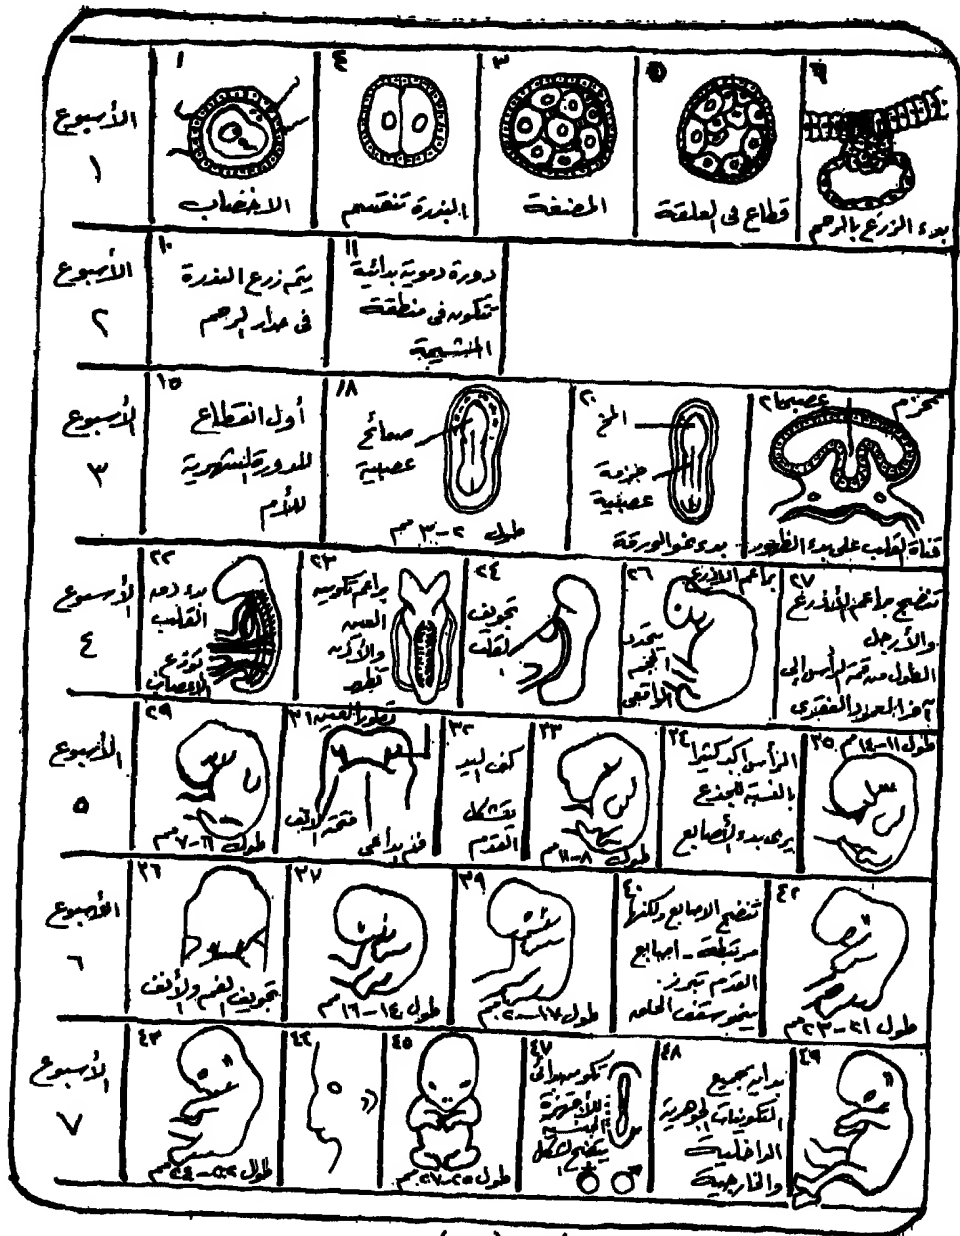 الأسبوع
١
١
الاخصاب
٤
البذرة تنقسم
٣
المضغة
٥
قطاع فى العلقة
٦
بدء الزرع بالرحم
الأسبوع
٢
١٠
يتم زرع البذرة
فى جدار الرحم
١١
دورة دموية بدائية
تتكون فى منطقة
المشيمة
الأسبوع
٣
١٥
أول انقطاع
للدورة الشهرية
للأم
١٨
صفائح
عصبية
طول ٢-٣ مم
٢٠
المخ
حزمة
عصبية
بدء نمو الورقة
عصبية
قناة القلب على بدء الظهور
الأسبوع
٤
٢٢
القلب
توزع
الأعصاب
٢٣
براعم تكوين
العين
والأذن
تظهر
٢٤
تجويف
القلب
٢٦
براعم الاذرع
٢٧
تتضح براعم الأذرع
والأرجل
الطول من قمة الرأس إلى
آخر العمود الفقرى
الأسبوع
٥
٢٩
طول ٦-٧ مم
٣١
تطور العين
فتحة الانف
فم بدائى
٣٢
كف اليد
يتشكل
القدم
٣٣
طول ٨-١١ مم
٣٤
الرأس أكبر كثيرا
بالنسبة للجذع
يرى بدء الأصابع
٣٥
طول ١١-١٤ مم
الأسبوع
٦
٣٦
تجويف الفم والأنف
٣٧
طول ١٤-١٦ مم
٣٩
طول ١٧-٢٠ مم
٤٠
تتضح الاصابع ولكنها
مرتبطة - اصابع
القدم تبرز.
٤٢
طول ٢١-٢٣ مم
الأسبوع
٧
٤٣
٤٤
٤٥
طول ٢٥-٢٧ مم
٤٧
٤٨
بداية جميع
التكوينات الجوهرية
الداخلية
والخارجية
٤٩